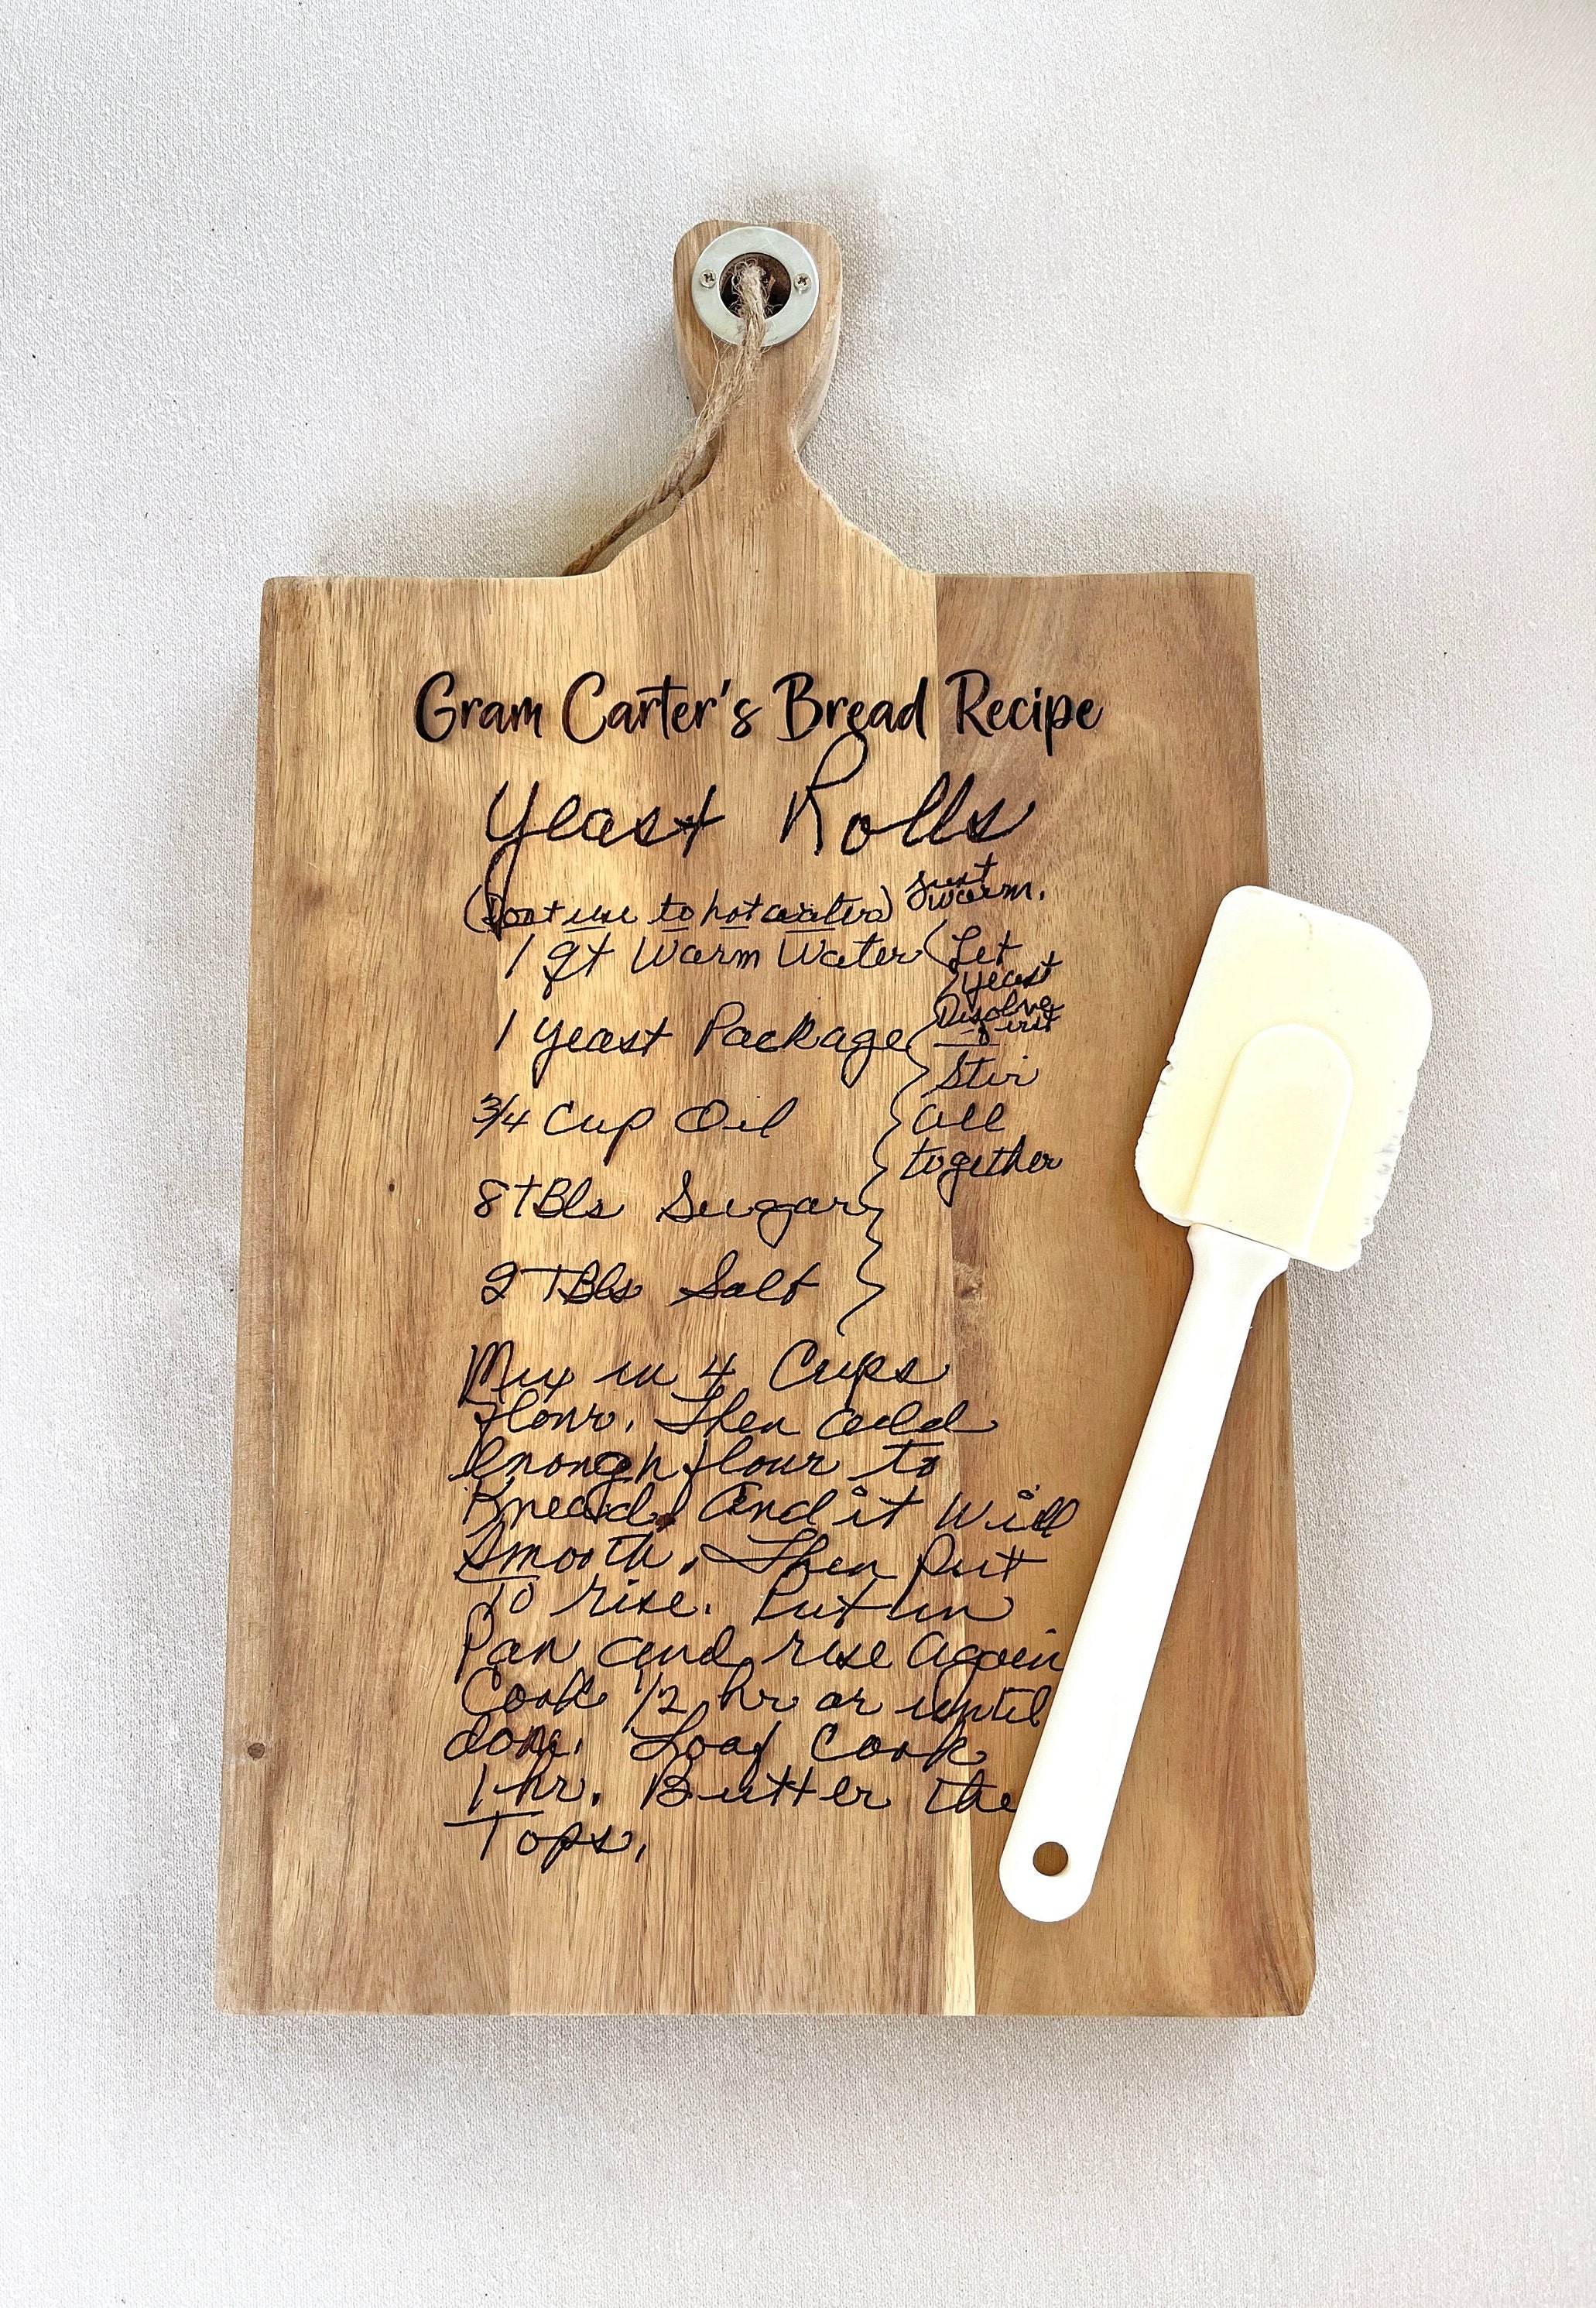 Gram Carter's Bread Recipe
Yeast Rolls
(Dont use to hot water) Just warm.
1 qt Warm Water (Let
yeast
Disolve
first
1 yeast Package
Stir
3/4 Cup Oil
all
together
8 tBls Sugar
2 TBls Salt
Mix in 4 Cups
flour. Then add
Enough flour to
Knead, and it Will
Smooth. Then Putt
To rise. Put in
Pan and rise again
Cook 1/2 hr or until
done. Loaf Cook
1 hr. Butter the
Tops.